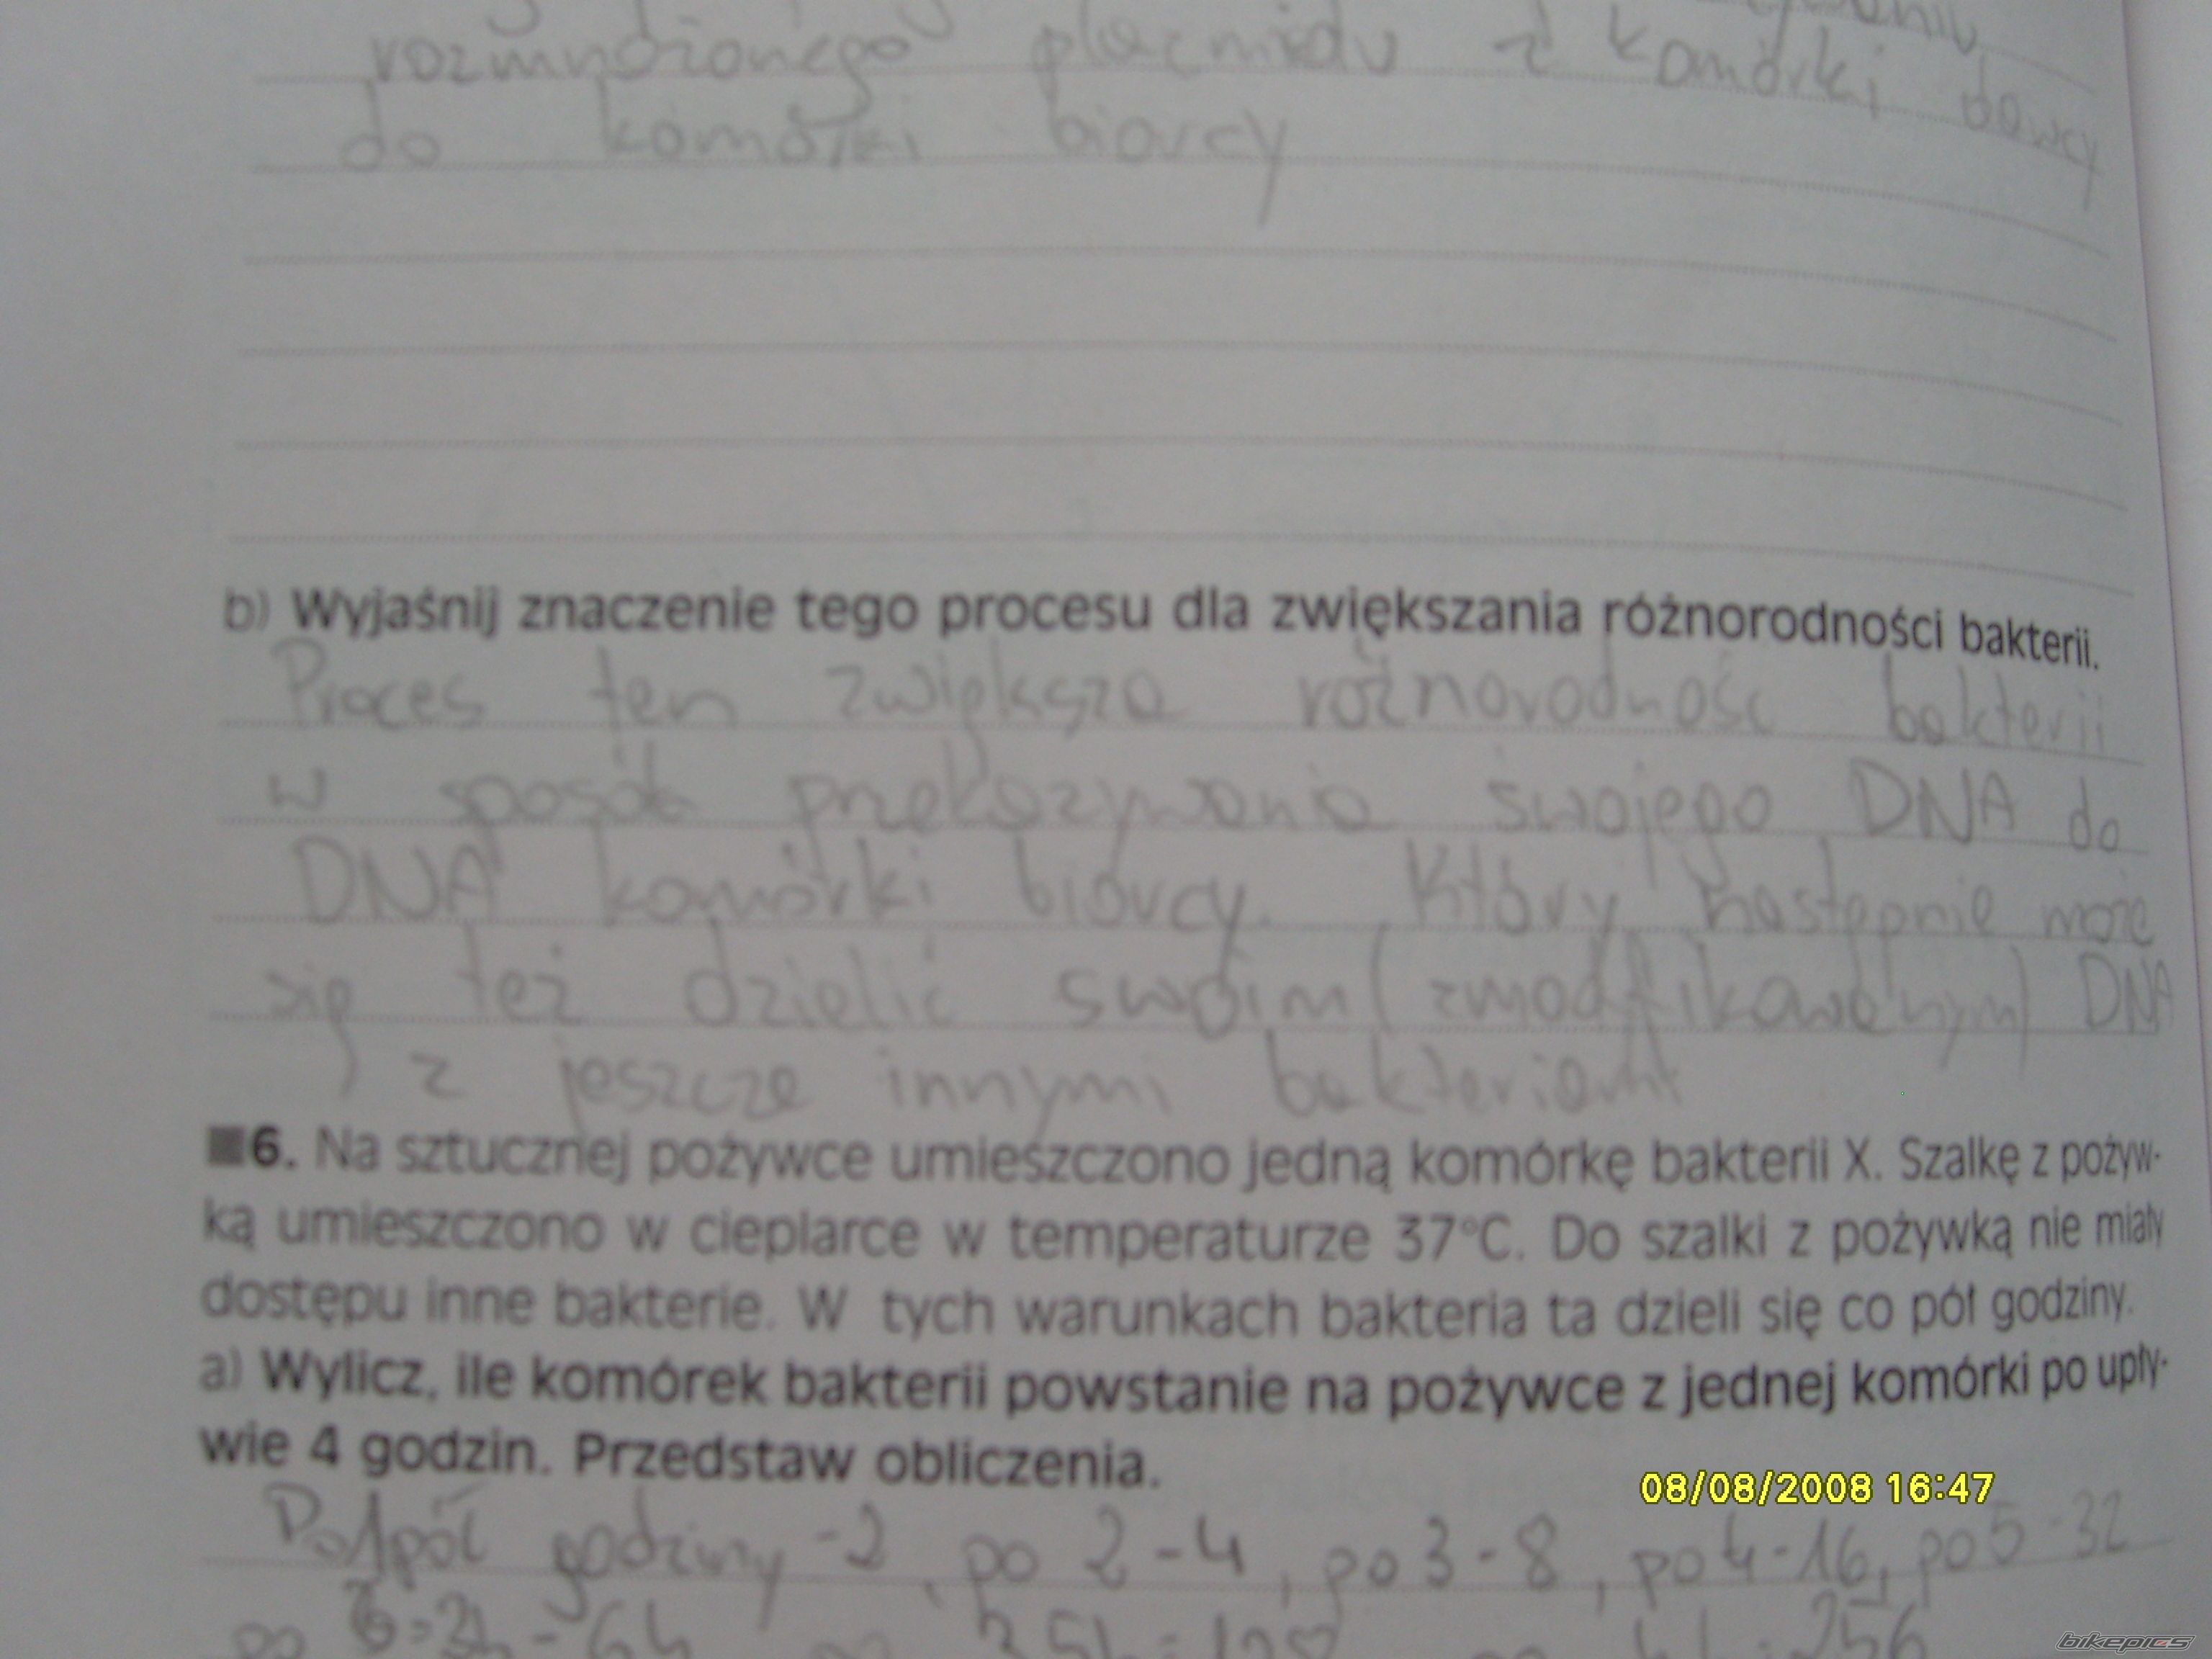 rozmnożonego plazmidu z komórki dawcy
do komórki biorcy
b) Wyjaśnij znaczenie tego procesu dla zwiększania różnorodności bakterii.
Proces ten zwiększa różnorodność bakterii
w sposób przekazywania swojego DNA do
DNA komórki biorcy. Który następnie może
się też dzielić swoim (zmodyfikowanym) DNA
z jeszcze innymi bakteriami
6. Na sztucznej pożywce umieszczono jedną komórkę bakterii X. Szalkę z pożyw-
ką umieszczono w cieplarce w temperaturze 37°C. Do szalki z pożywką nie miały
dostępu inne bakterie. W tych warunkach bakteria ta dzieli się co pół godziny.
a) Wylicz, ile komórek bakterii powstanie na pożywce z jednej komórki po upły-
wie 4 godzin. Przedstaw obliczenia.
08/08/2008 16:47
Po 1 pół godziny - 2, po 2 - 4, po 3 - 8, po 4 - 16, po 5 - 32
po 6 = 3h - 64 3,5h - 128 4h - 256
bikepics